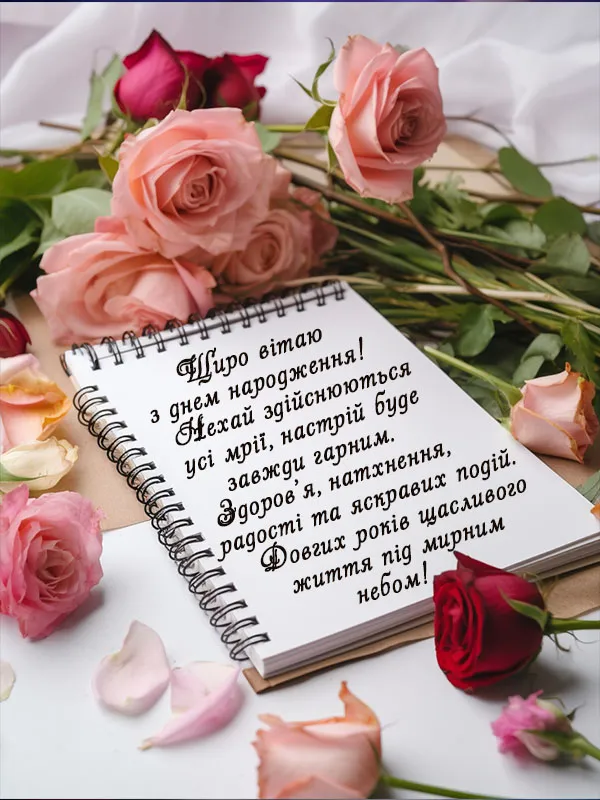 Щиро вітаю
з днем народження!
Нехай здійснюються
усі мрії, настрій буде
завжди гарним.
Здоров'я, натхнення,
радості та яскравих подій.
Довгих років щасливого
життя під мирним
небом!